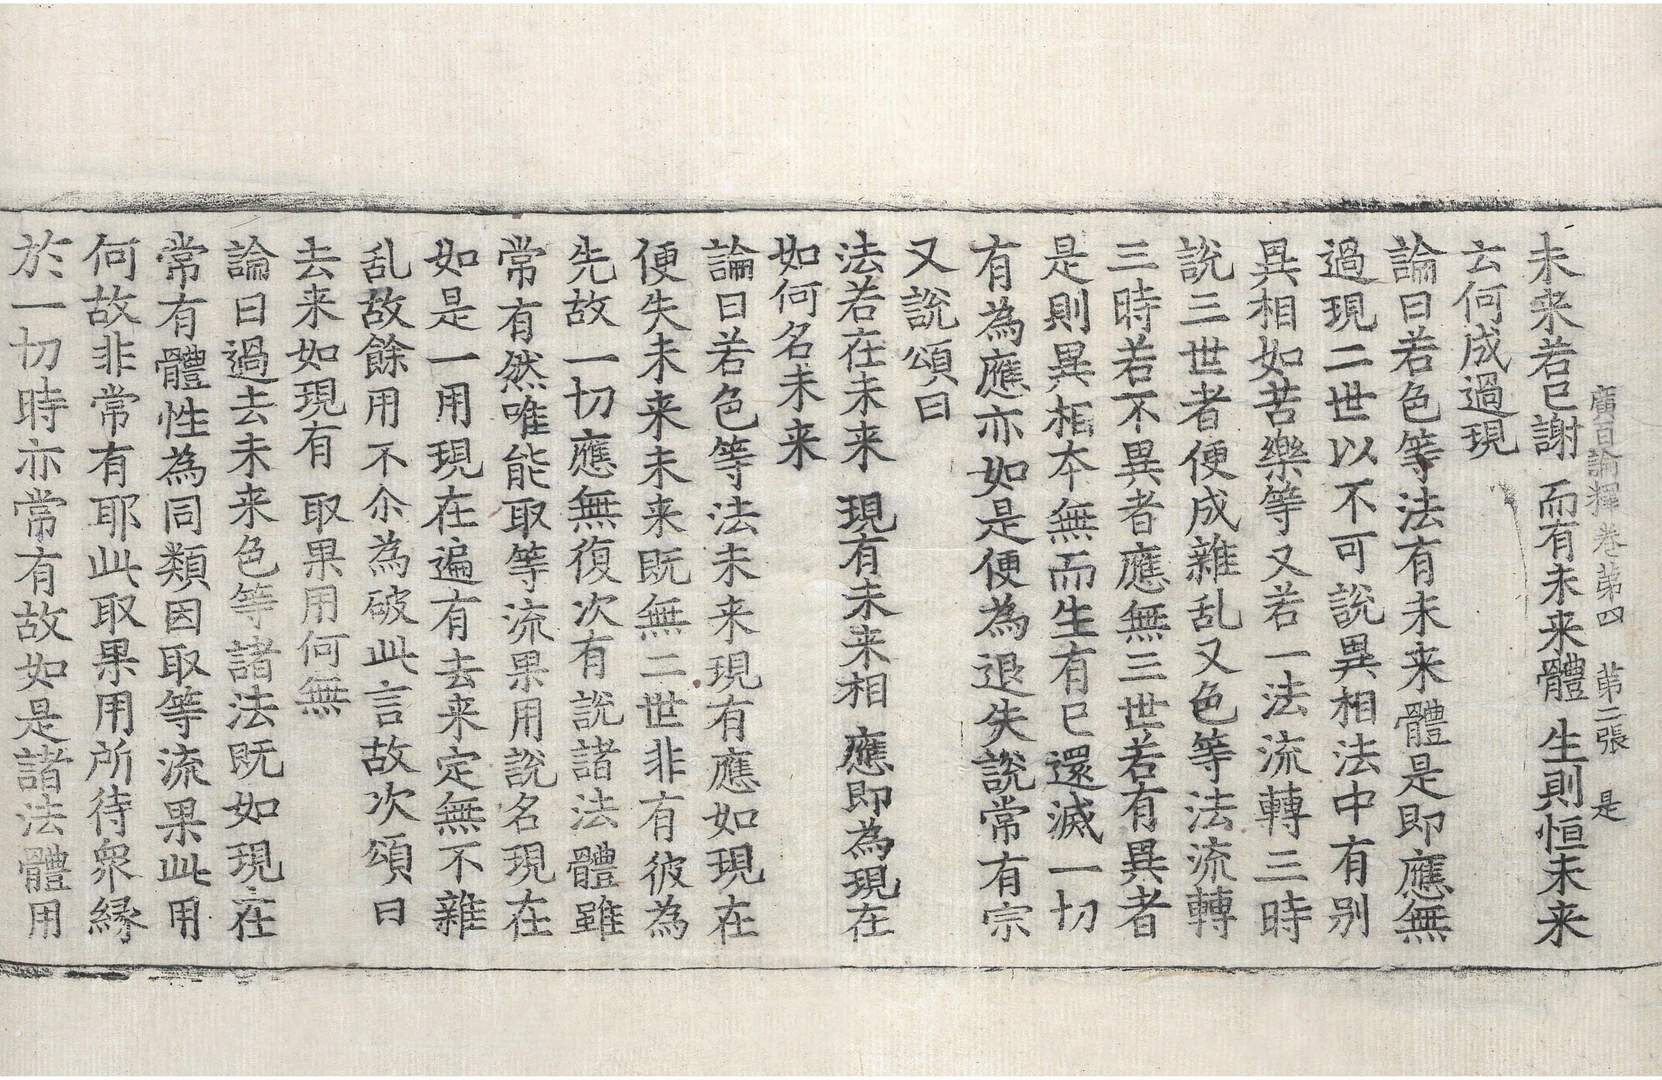 廣百論釋卷第四　第二張　是
未来若已謝　而有未来體　生則恒未来
云何成過現
論曰若色等法有未来體是即應無
過現二世以不可説異相法中有别
異相如苦樂等又若一法流轉三時
説三世者便成雜乱又色等法流轉
三時若不異者應無三世若有異者
是則異相本無而生有已還滅一切
有為應亦如是便為退失説常有宗
又説頌曰
法若在未来　現有未来相　應即為現在
如何名未来
論曰若色等法未来現有應如現在
便失未来未来既無二世非有彼為
先故一切應無復次有説諸法體雖
常有然唯能取等流果用説名現在
如是一用現在遍有去来定無不雜
乱故餘用不尒為破此言故次頌曰
去来如現有　取果用何無
論曰過去未来色等諸法既如現在
常有體性為同類因取等流果此用
何故非常有耶此取果用所待衆縁
於一切時亦常有故如是諸法體用